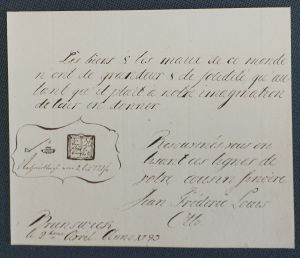 Les biens & les maux de ce monde
n'ont de grandeur & de solidité qu'au
tant qu'il plait a notre imagination
de leur en donner
Ressouvenés vous en
lisant ces lignes de
votre cousin sincère
Jean Frédéric Louis
Otto
Brunswick
le Avril Anno 1793